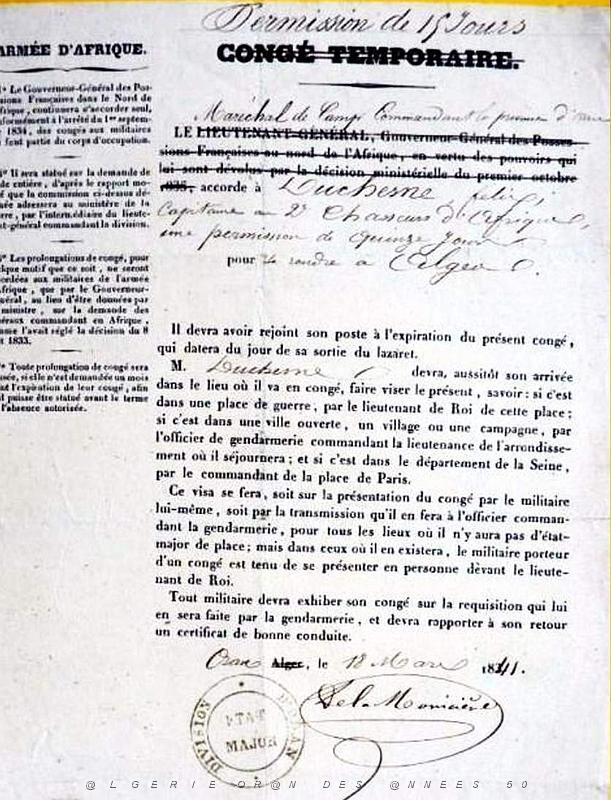 Permission de 15 Jours
CONGÉ TEMPORAIRE.
ARMÉE D'AFRIQUE.
Le Gouverneur-Général des Pos-
sions Françaises dans le Nord de
frique, continuera d'accorder seul,
formément à l'arrêté du 1er septem-
1834, des congés aux militaires
font partie du corps d'occupation.
Il sera statué sur la demande de
de entière, d'après le rapport mo-
é que la commission ci-dessus dé-
née adressera au ministère de la
rre, par l'intermédiaire du lieute-
t-général commandant la division.
Les prolongations de congé, pour
lque motif que ce soit, ne seront
cordées aux militaires de l'armée
frique, que par le Gouverneur-
néral, au lieu d'être données par
ministre, sur la demande des
éraux commandant en Afrique,
ame l'avait réglé la décision du 8
t 1833.
Toute prolongation de congé sera
usée, si elle n'est demandée un mois
nt l'expiration de leur congé, afin
il puisse être statué avant le terme
l'absence autorisée.
Maréchal de Camp Commandant la province d'Oran
LE LIEUTENANT-GÉNÉRAL, Gouverneur-Général des Posses-
sions Françaises au nord de l'Afrique, en vertu des pouvoirs qui
lui sont dévolus par la décision ministérielle du premier octobre
1835, accorde à Duchesne, felix,
Capitaine au 2e Chasseurs d'Afrique,
une permission de quinze Jours
pour se rendre à Alger.
Il devra avoir rejoint son poste à l'expiration du présent congé,
qui datera du jour de sa sortie du lazaret.
M. Duchesne devra, aussitôt son arrivée
dans le lieu où il va en congé, faire viser le présent, savoir: si c'est
dans une place de guerre, par le lieutenant de Roi de cette place;
si c'est dans une ville ouverte, un village ou une campagne, par
l'officier de gendarmerie commandant la lieutenance de l'arrondisse-
ment où il séjournera; et si c'est dans le département de la Seine,
par le commandant de la place de Paris.
Ce visa se fera, soit sur la présentation du congé par le militaire
lui-même, soit par la transmission qu'il en fera à l'officier comman-
dant la gendarmerie, pour tous les lieux où il n'y aura pas d'état-
major de place; mais dans ceux où il en existera, le militaire porteur
d'un congé est tenu de se présenter en personne devant le lieute-
nant de Roi.
Tout militaire devra exhiber son congé sur la requisition qui lui
en sera faite par la gendarmerie, et devra rapporter à son retour
un certificat de bonne conduite.
Oran Alger, le 18 Mars 1841.
De la Moricière
DIVISION D'ORAN
ETAT
MAJOR
@LGERIE OR@N DES @NNEES 50